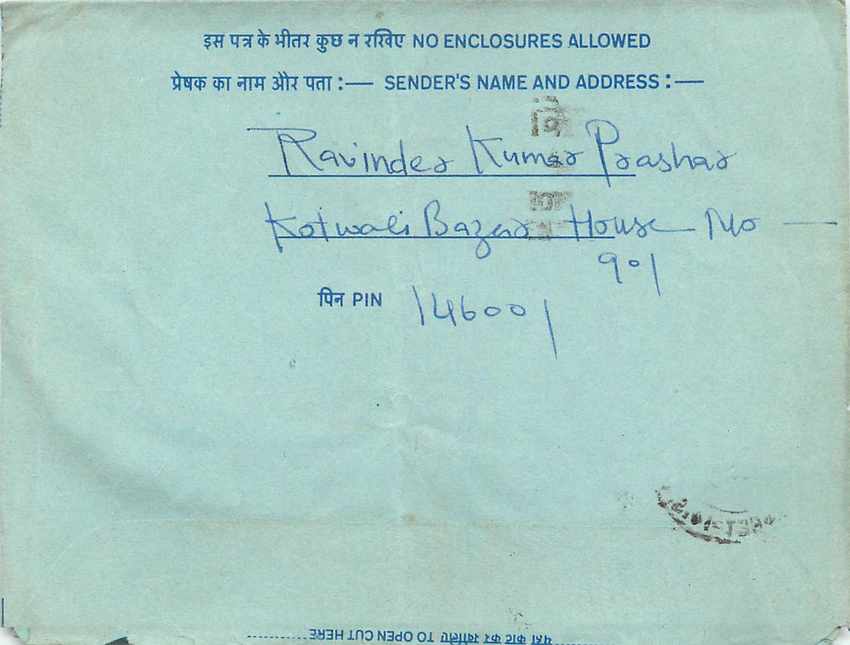 इस पत्र के भीतर कुछ न रखिए NO ENCLOSURES ALLOWED
प्रेषक का नाम और पता :— SENDER'S NAME AND ADDRESS :—
Ravinder Kumar Prashar
Kotwali Bazar House No —
901
पिन PIN 146001
यहां काट कर खोलिए TO OPEN CUT HERE